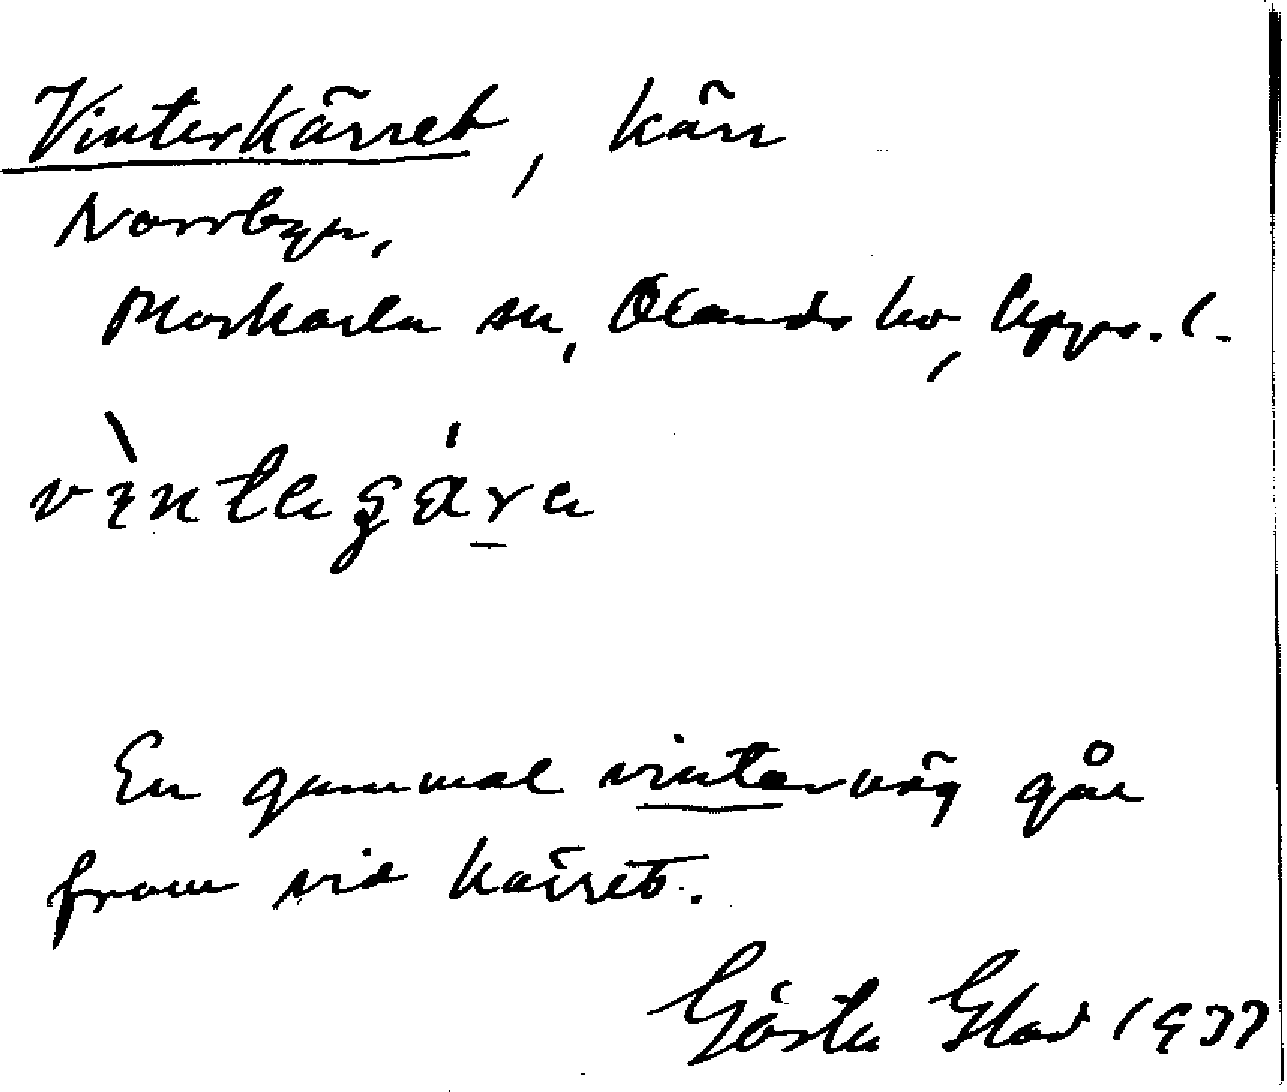 Vinterkärret, kärr
Norrbyn,
Morkarla sn, Ölands hd, Upps. l.
En gammal vinterväg går
fram vid kärret.
Gösta Glad 1937